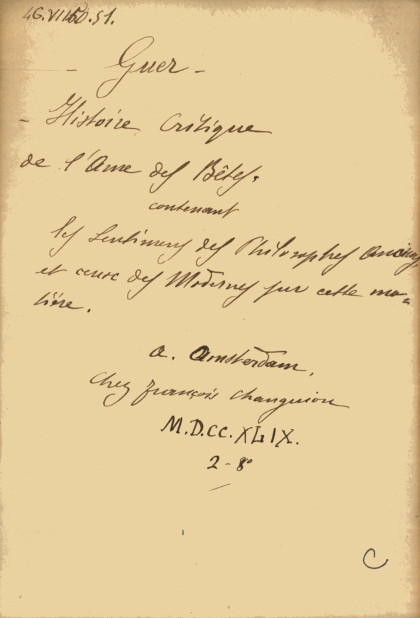 46.VII.D.51.
- Guer -
- Histoire Critique
de l'Ame des Bêtes.
contenant
les sentimens des Philosophes Anciens
et ceux des Modernes sur cette ma-
tière.
a. Amsterdam.
Chez François Changuion
M.D.CC.XLIX.
2-8°
C